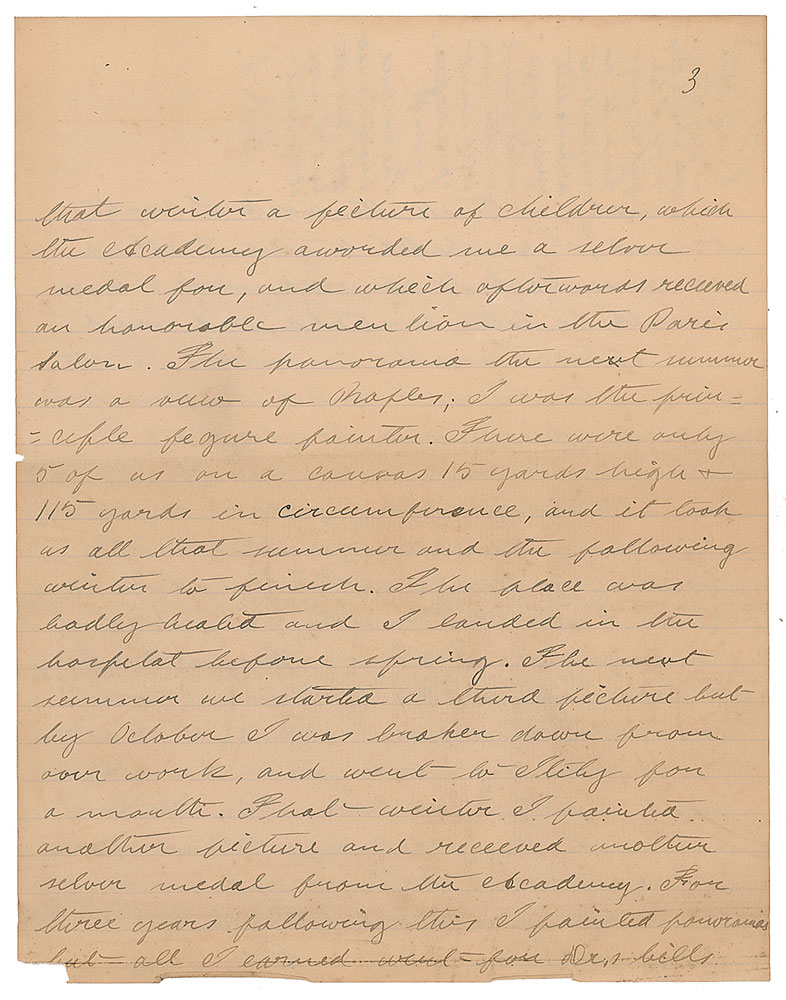 3
that winter a picture of children, which
the Academy awarded me a selver
medal for, and which afterwards recieved
an honorable mention in the Paris
Salon. The panorama the next summer
was a view of Naples; I was the prin=
=ciple figure painter. There were only
5 of us on a canvas 15 yards high +
115 yards in circumference, and it took
us all that summer and the following
winter to finish. The place was
badly heated and I landed in the
hospital before spring. The next
summer we started a third picture but
by October I was broken down from
over work, and went to Itily for
a month. That winter I painted
another picture and received another
selver medal from the Academy. For
three years following this I painted panoramas
but all I earned went for Dr,s bills